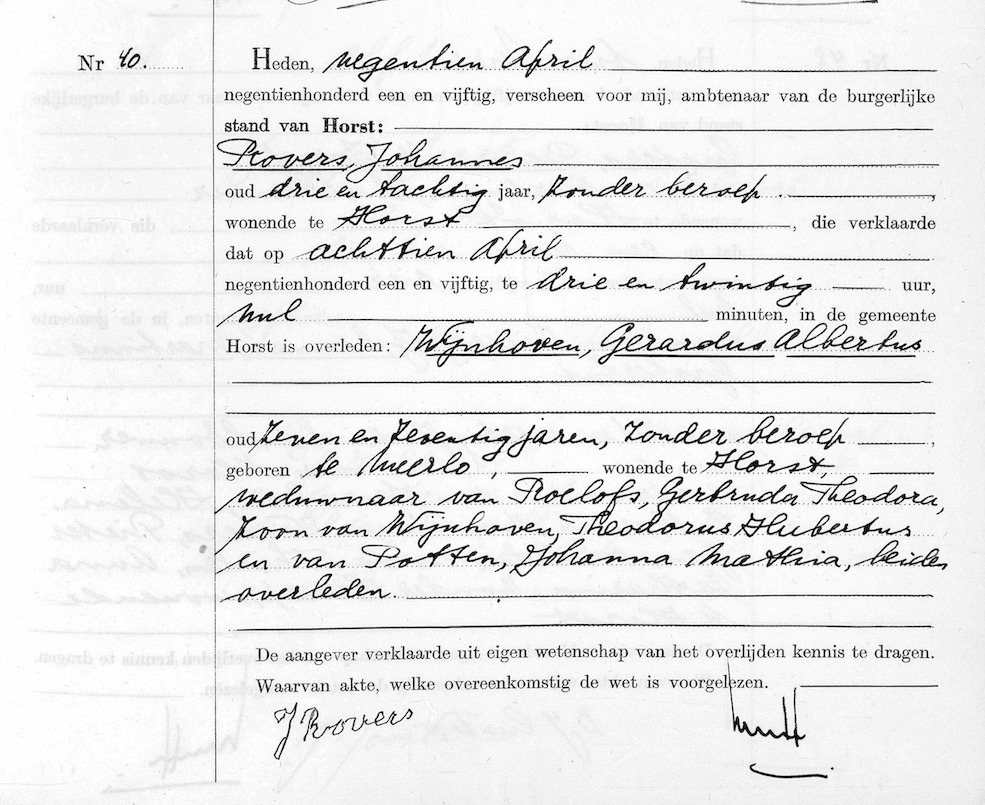 Nr 40.
Heden, negentien April
negentienhonderd een en vijftig, verscheen voor mij, ambtenaar van de burgerlijke
stand van Horst:
Rovers, Johannes
oud drie en tachtig jaar, zonder beroep ,
wonende te Horst , die verklaarde
dat op achttien April
negentienhonderd een en vijftig, te drie en twintig uur,
nul minuten, in de gemeente
Horst is overleden: Wijnhoven, Gerardus Albertus
oud zeven en zeventig jaren, zonder beroep ,
geboren te Meerlo, wonende te Horst,
weduwnaar van Roelofs, Gertruda Theodora,
zoon van Wijnhoven, Theodorus Hubertus
en van Potten, Johanna Mathia, beiden
overleden.
De aangever verklaarde uit eigen wetenschap van het overlijden kennis te dragen.
Waarvan akte, welke overeenkomstig de wet is voorgelezen.
J Rovers